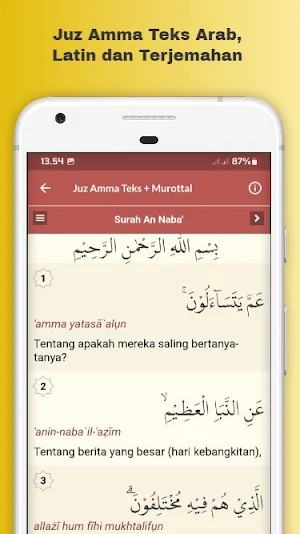 Juz Amma Teks Arab,
Latin dan Terjemahan
13.54
87%
Juz Amma Teks + Murottal
Surah An Naba'
بِسْمِ اللّٰهِ الرَّحْمٰنِ الرَّحِيْمِ
1
عَمَّ يَتَسَاۤءَلُوْنَۚ
'amma yatasā`alụn
Tentang apakah mereka saling bertanya-
tanya?
2
عَنِ النَّبَاِ الْعَظِيْمِۙ
'anin-naba`il-'aẓīm
Tentang berita yang besar (hari kebangkitan),
3
الَّذِيْ هُمْ فِيْهِ مُخْتَلِفُوْنَۗ
allażī hum fīhi mukhtalifụn